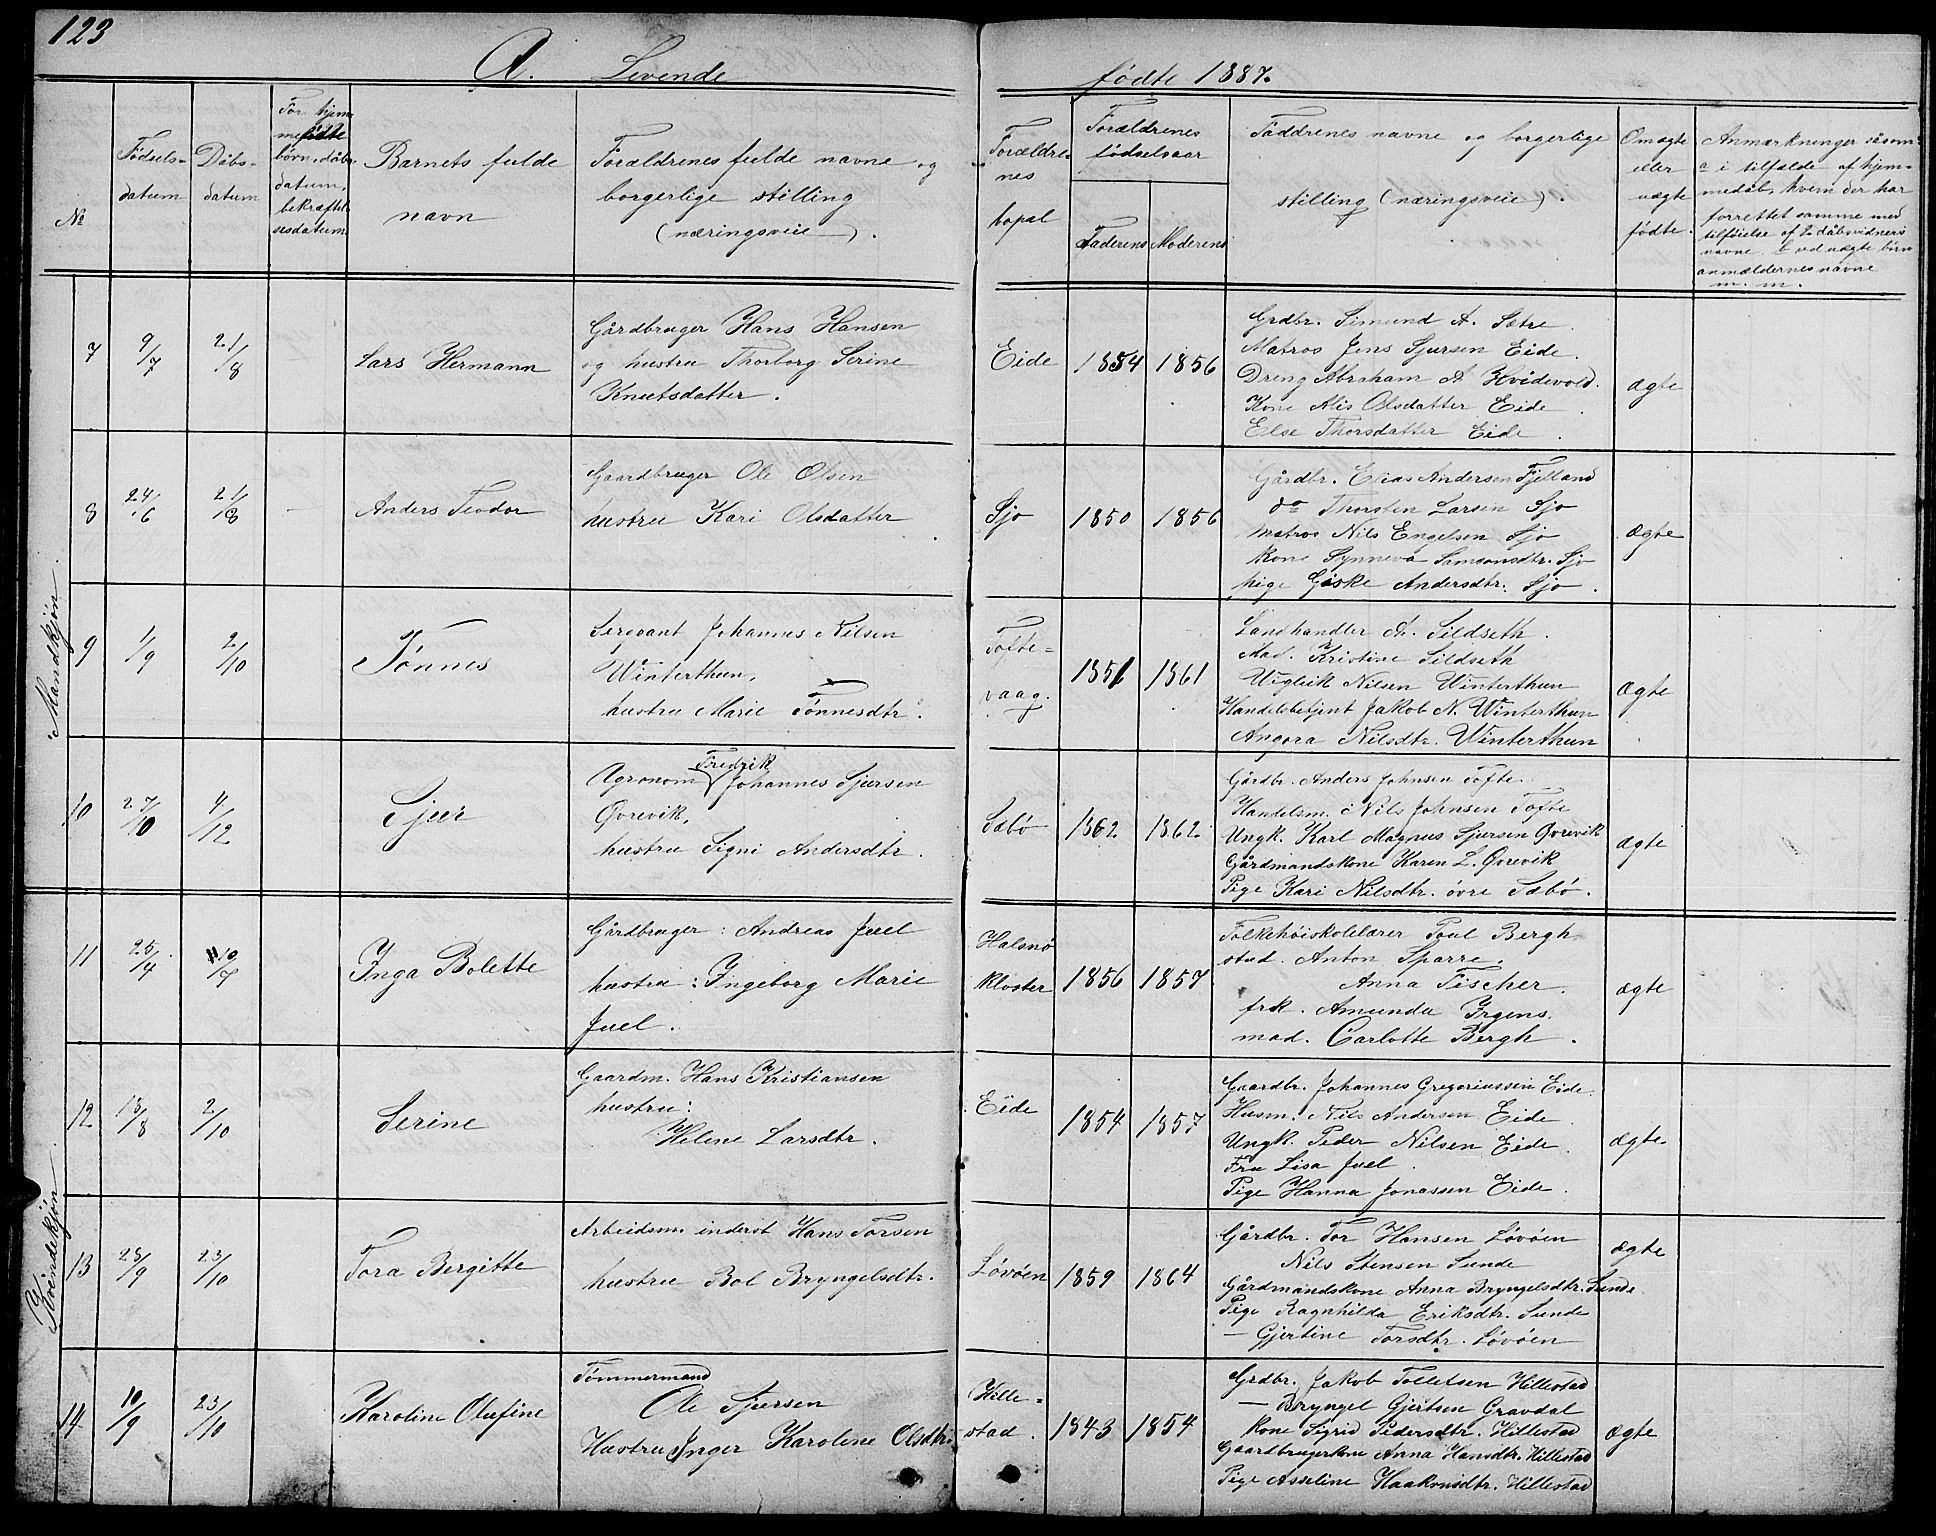 123
A. Levende fødte 1887.
№
Fødsels-
datum
Dåbs-
datum
For hjem-
mefødte
børn, dåbs-
datum,
bekræftel-
sesdatum
Barnets fulde
navn
Forældrenes fulde navne og
borgerlige stilling
(næringsveie).
Forældre-
nes
bopel
Forældrenes
fødselsaar
Faderens
Moderens
Faddrenes navne og borgerlige
stilling (næringsveie).
Om ægte
eller
uægte
fødte.
Anmærkninger såsom
a i tilfælde af hjem-
medåb, hvem der har
forrettet samme med
tilføielse af 2 dåbsvidners
navne. b ved uægte børn
anmældernes navne
m. m.
Mandkjøn.
7
9/7
21/8
Lars Hermann
Gårdbruger Hans Hansen
og hustru Thorborg Serine
Knutsdatter.
Eide
1854
1856
Grdbr. Simund A. Sætre.
Matros Jens Sjursen Eide.
Dreng Abraham A. Hvidevold.
Kone Alis Olsdatter Eide.
Else Thorsdatter Eide.
ægte
8
24/6
21/8
Anders Teodor
Gaardbruger Ole Olsen
hustru Kari Olsdatter.
Sjo
1850
1856
Gårdbr. Elias Andersen Fjelland
do Thorsten Larsen Sjo
Matros Nils Engelsen Sjo
Kone Synneva Samsonsdtr. Sjo
pige Giske Andersdtr. Sjo.
ægte
9
1/9
2/10
Tönnes
Sergeant Johannes Nilsen
Winterthun,
hustru Marie Tönnesdtr.
Tofte-
vaag.
1851
1861
Landhandler A. Sildseth.
Mad. Kristine Sildseth
Vigleik Nilsen Winterthun
Handelsbetjent Jakob N. Winterthun
Angora Nilsdtr. Winterthun
Ægte
10
27/10
4/12
Sjur
Agronom Fredrik Johannes Sjursen
Øvrevik,
hustru Signi Andersdtr.
Sæbö
1862
1862
Gårdbr. Anders Johnsen Tofte.
Handelsm. Nils Johnsen Tofte
Ungk. Karl Magnus Sjursen Øvrevik
Gårdmandskone Karen L. Øvrevik
Pige Kari Nilsdtr. övre Sæbö.
ægte
Kvindekjøn.
11
25/4
10/7
Inga Bolette
Gårdbruger: Andreas Juel
hustru: Ingeborg Marie
Juel.
Halsnö
kloster
1856
1857
Folkehöiskolelærer Poul Bergh
stud. Anton Sparre.
Anna Fischer.
frk. Amunda Irgens.
mad. Carlotte Bergh.
ægte
12
13/8
2/10
Serine
Gaardm. Hans Kristiansen
hustru:
Helene Larsdtr.
Eide
1854
1857
Gaardbr. Johannes Gregoriussen Eide.
Husm. Nils Andersen Eide.
Ungk. Peder Nilsen Eide.
Fru Lisa Juel.
Pige Hanna Jonassen Eide.
ægte
13
23/10
Tora Bergitte
Arbeidsm. inderst Hans Torsen
hustru Bol Bryngelsdtr.
Lövöen
1859
1864
Gårdbr. Tor Hansen Lövöen
Nils Stensen Sunde
Gårdmandskone Anna Bryngelsdtr. Sunde.
Pige Ragnhilda Eriksdtr. Sunde
— Gjertine Torsdtr. Lövöen
ægte
14
10/9
23/10
Karoline Olufine
Tömmermand
Ole Sjursen
Hustru Inger Karoline Olsdtr.
Hille-
stad.
1843
1854
Grdbr. Jakob Tolleisen Hillestad
— Bryngel Gjertsen Gravdal
Kone Sigrid Pedersdtr. Hillestad
Gaardbrugerkone Anna Hansdtr. Hillestad
Pige Asseline Haakonsdtr. Hillestad
ægte